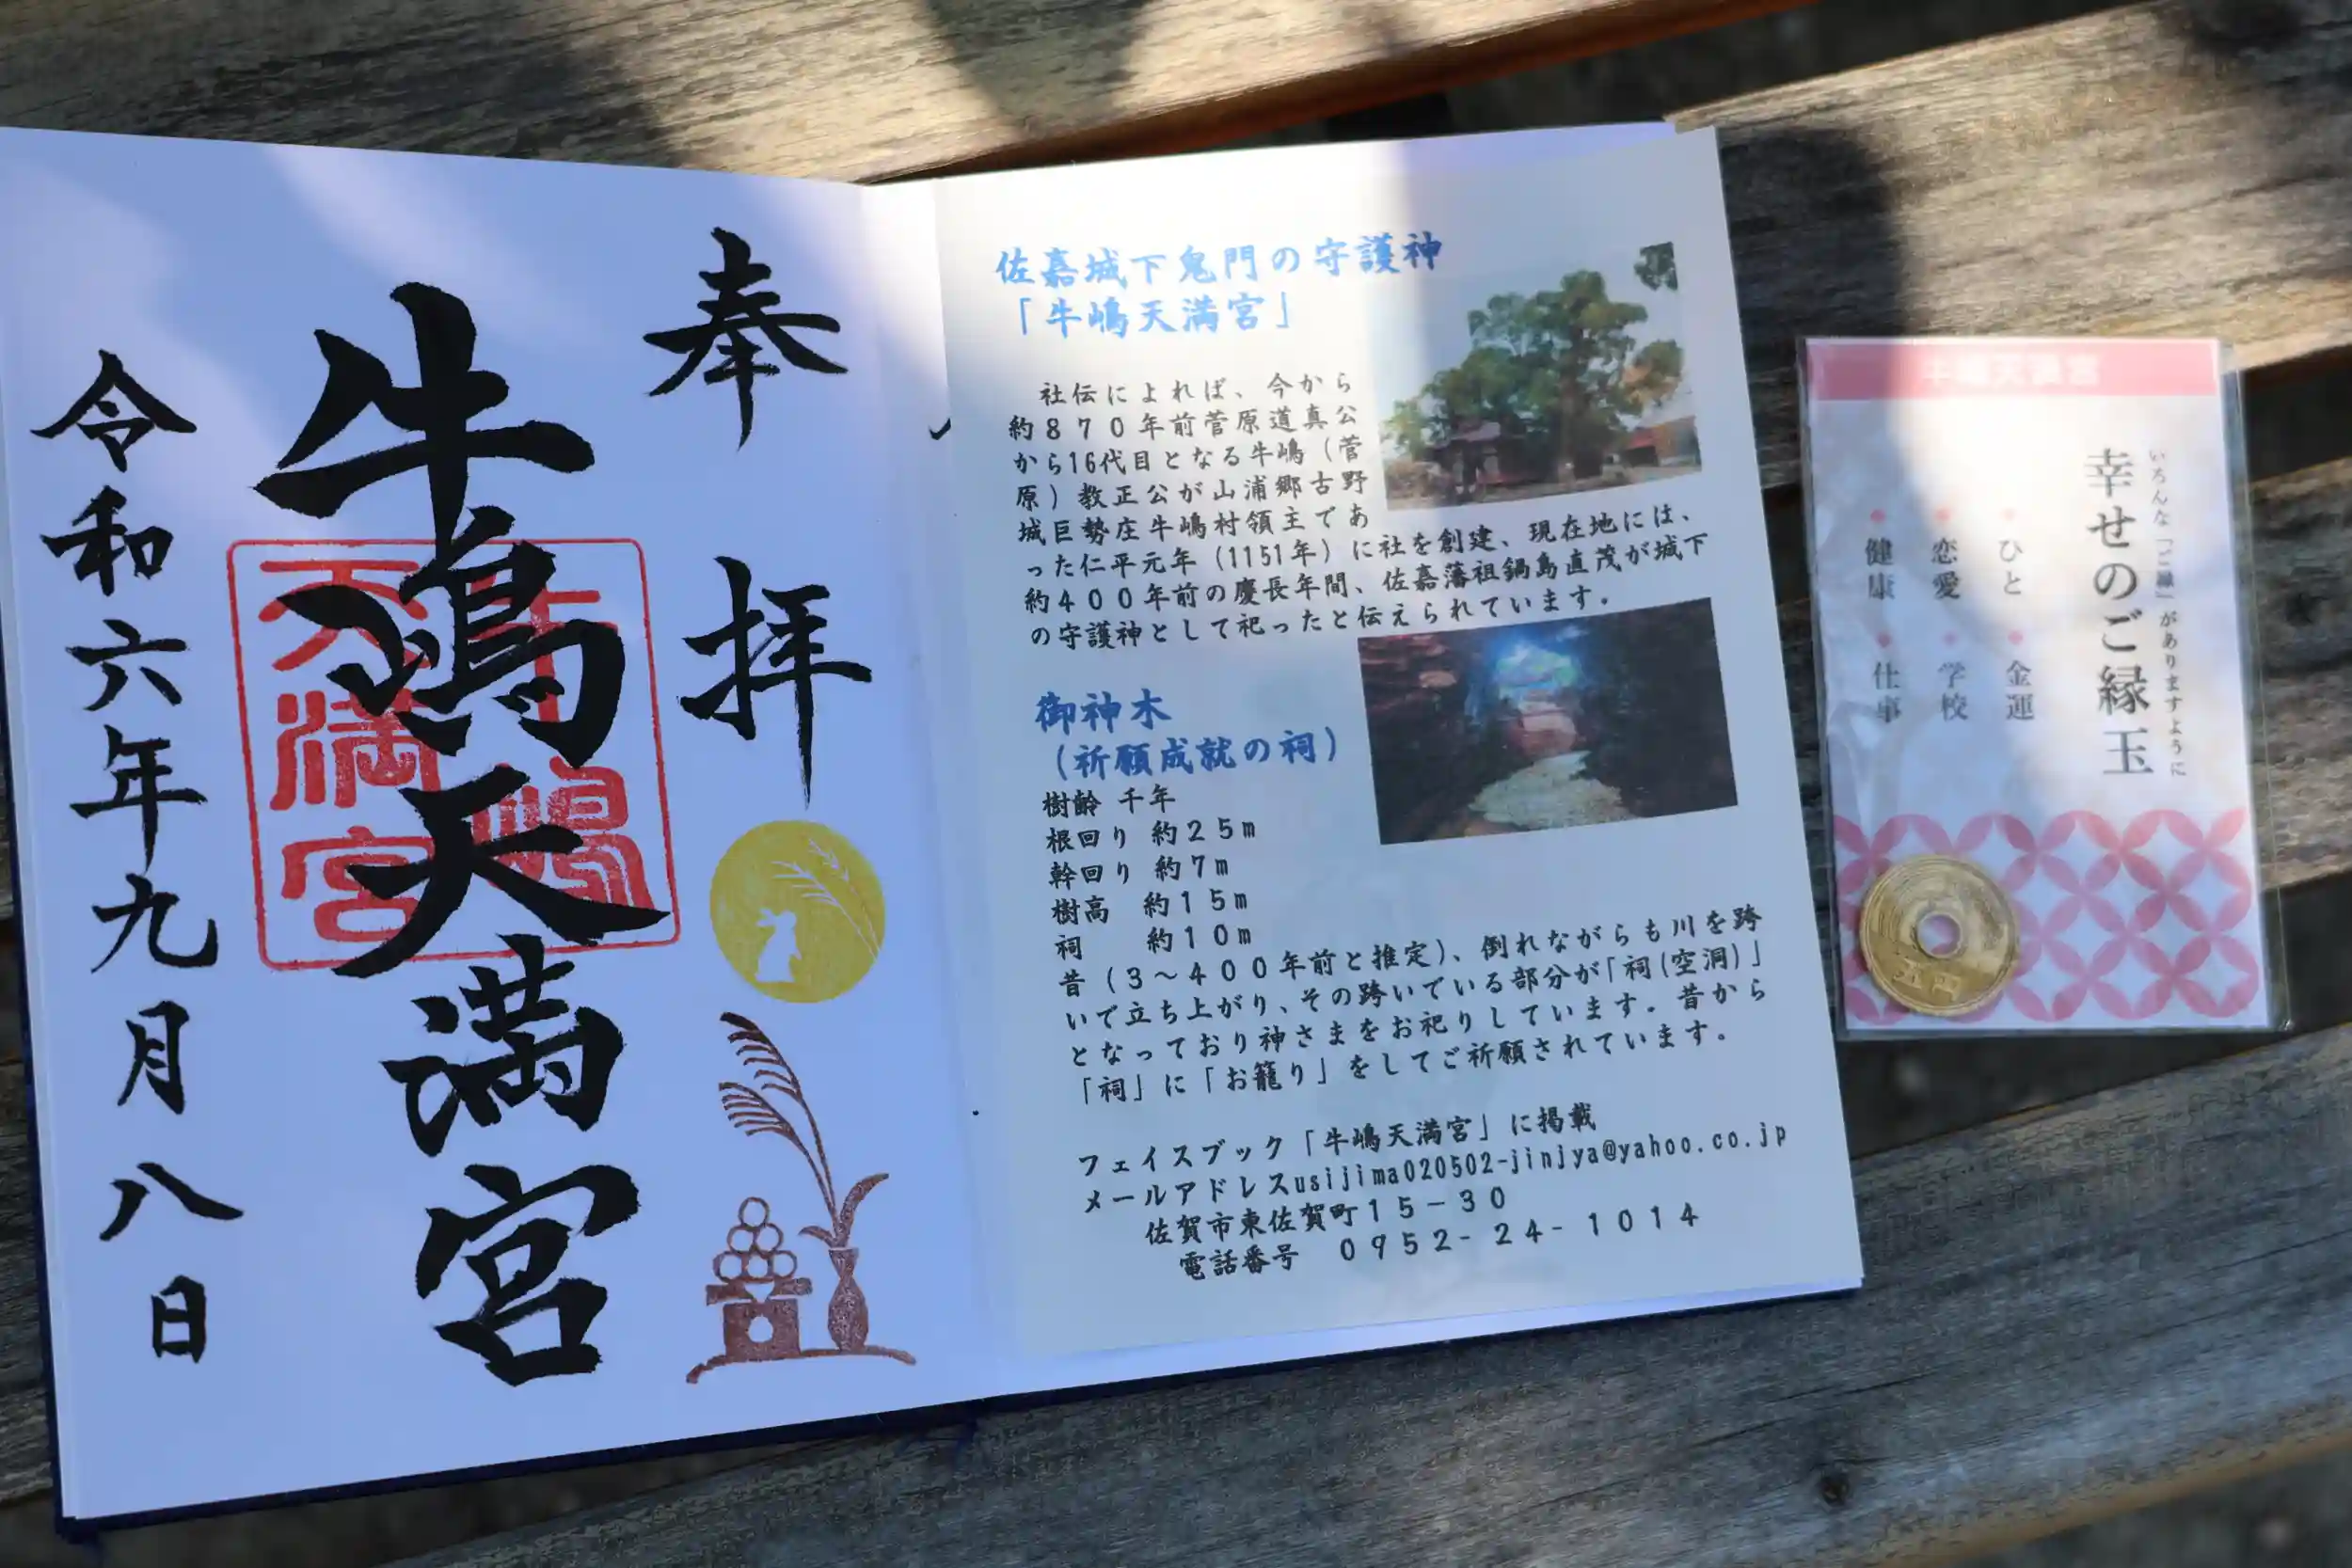 奉拝
牛嶋天満宮
令和六年九月八日
牛嶋
天満宮
佐嘉城下鬼門の守護神
「牛嶋天満宮」
社伝によれば、今から
約870年前菅原道真公
から16代目となる牛嶋(菅
原)教正公が山浦郷古野
城巨勢庄牛嶋村領主であ
った仁平元年(1151年)に社を創建、現在地には、
約400年前の慶長年間、佐嘉藩祖鍋島直茂が城下
の守護神として祀ったと伝えられています。
御神木
(祈願成就の祠)
樹齢 千年
根回り 約25m
幹回り 約7m
樹高 約15m
祠 約10m
昔(3～400年前と推定)、倒れながらも川を跨
いで立ち上がり、その跨いでいる部分が「祠(空洞)」
となっており神さまをお祀りしています。昔から
「祠」に「お籠り」をしてご祈願されています。
フェイスブック「牛嶋天満宮」に掲載
メールアドレスusijima020502-jinjya@yahoo.co.jp
佐賀市東佐賀町15－30
電話番号 0952-24-1014
牛嶋天満宮
いろんな「ご縁」がありますように
幸せのご縁玉
ひと 金運
恋愛 学校
健康 仕事
五円